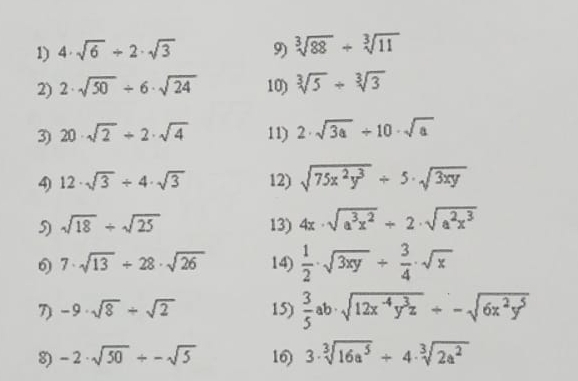 1) 4·√6 ÷ 2·√3
2) 2·√50 ÷ 6·√24
3) 20·√2 ÷ 2·√4
4) 12·√3 ÷ 4·√3
5) √18 ÷ √25
6) 7·√13 ÷ 28·√26
7) -9·√8 ÷ √2
8) -2·√50 ÷ -√5
9) ∛88 ÷ ∛11
10) ∛5 ÷ ∛3
11) 2·√3a ÷ 10·√a
12) √75x²y³ ÷ 5·√3xy
13) 4x·√a³x² ÷ 2·√a²x³
14) 1/2·√3xy ÷ 3/4·√x
15) 3/5 ab·√12x⁻⁴y³z ÷ -√6x²y⁵
16) 3·∛16a⁵ ÷ 4·∛2a²